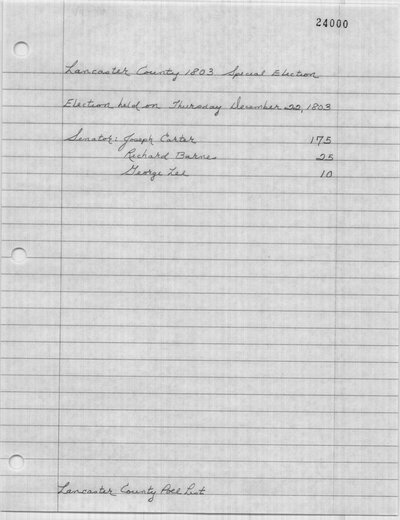 24000
Lancaster County 1803 Special Election
Election held on Thursday December 22, 1803
Senator: Joseph Carter 175
Richard Barnes 25
George Lee 10
Lancaster County Poll List